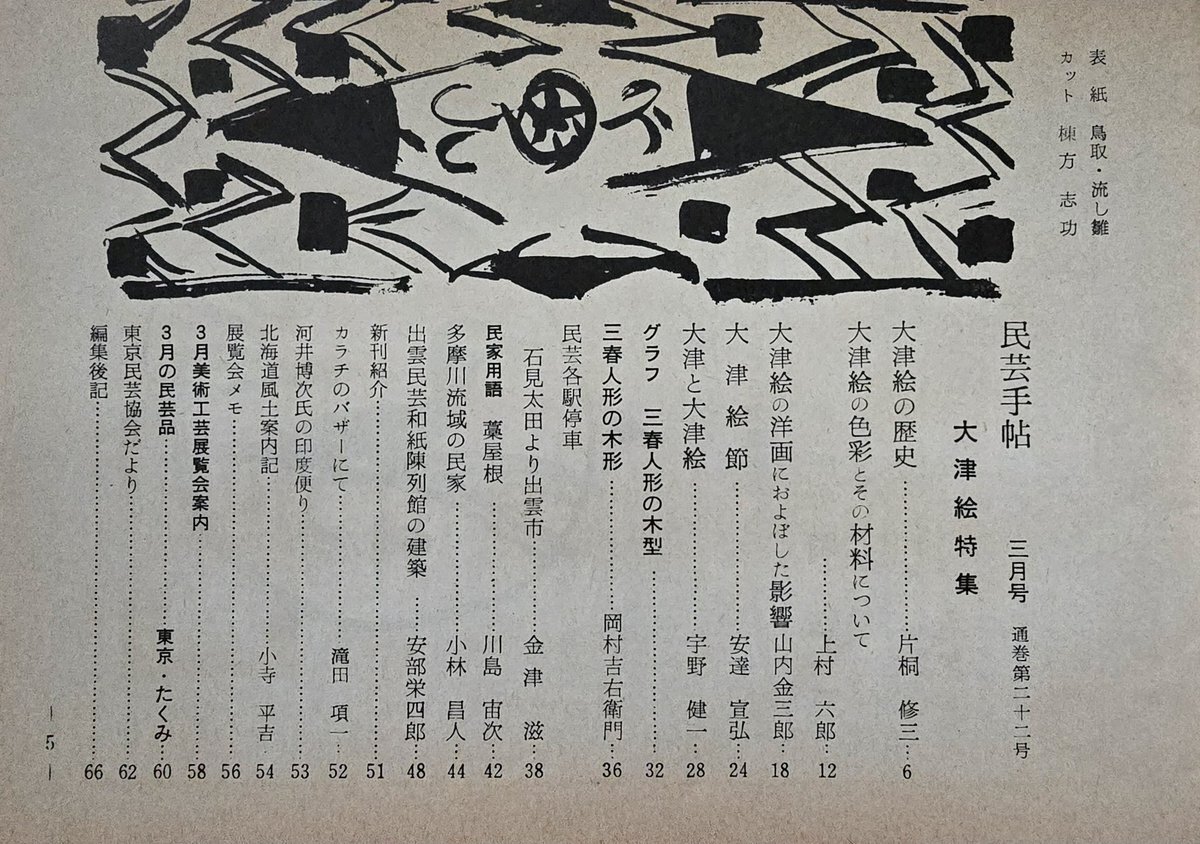 表紙 鳥取・流し雛
カット 棟方志功
民芸手帖 三月号 通巻第二十二号
大津絵特集
大津絵の歴史……片桐 修三…6
大津絵の色彩とその材料について
……上村 六郎…12
大津絵の洋画におよぼした影響 山内金三郎…18
大津絵節……安達 宣弘…24
大津と大津絵……宇野 健一…28
グラフ 三春人形の木型……32
三春人形の木形……岡村吉右衛門…36
民芸各駅停車
石見太田より出雲市……金津 滋…38
民家用語 藁屋根……川島 宙次…42
多摩川流域の民家……小林 昌人…44
出雲民芸和紙陳列館の建築……安部栄四郎…48
新刊紹介……51
カラチのバザーにて……滝田 項一…52
河井博次氏の印度便り……53
北海道風土案内記……小寺 平吉…54
展覧会メモ……56
3月美術工芸展覧会案内……58
3月の民芸品……東京・たくみ…60
東京民芸協会だより……62
編集後記……66
— 5 —